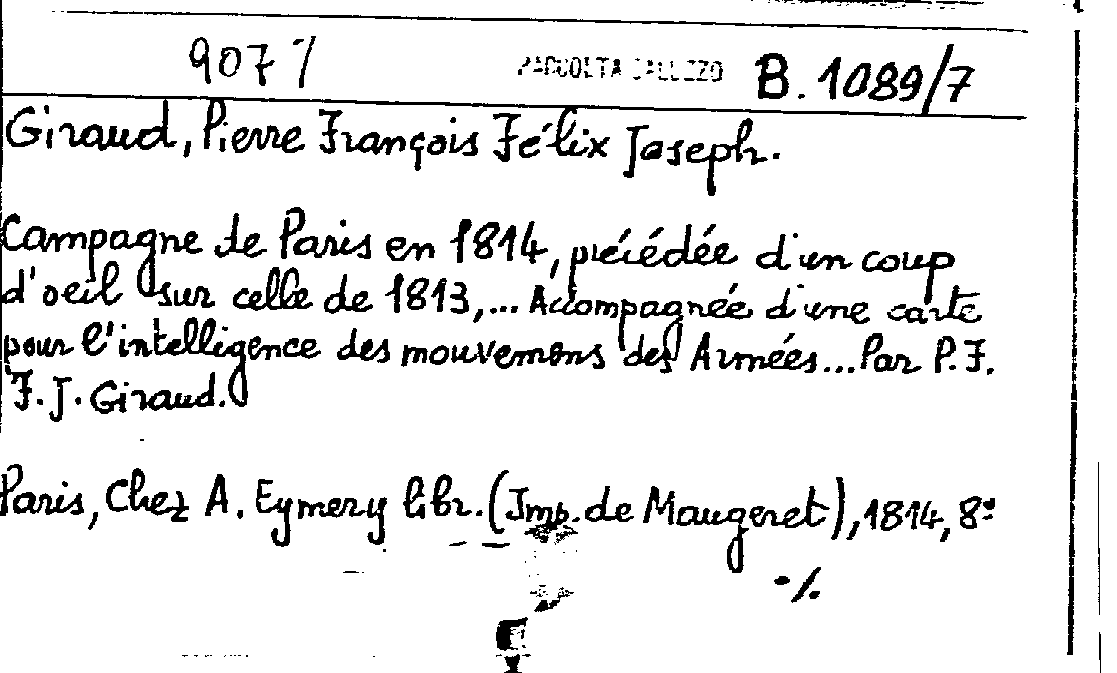 9071 RACCOLTA GALLIZZO B. 1089/7
Giraud, Pierre François Félix Joseph.
Campagne de Paris en 1814, précédée d'un coup
d'oeil sur celle de 1813,... Accompagnée d'une carte
pour l'intelligence des mouvemens des Armées... Par P. F.
F. J. Giraud.
Paris, Chez A. Eymery libr. (Imp. de Maugeret), 1814, 8º
·/.